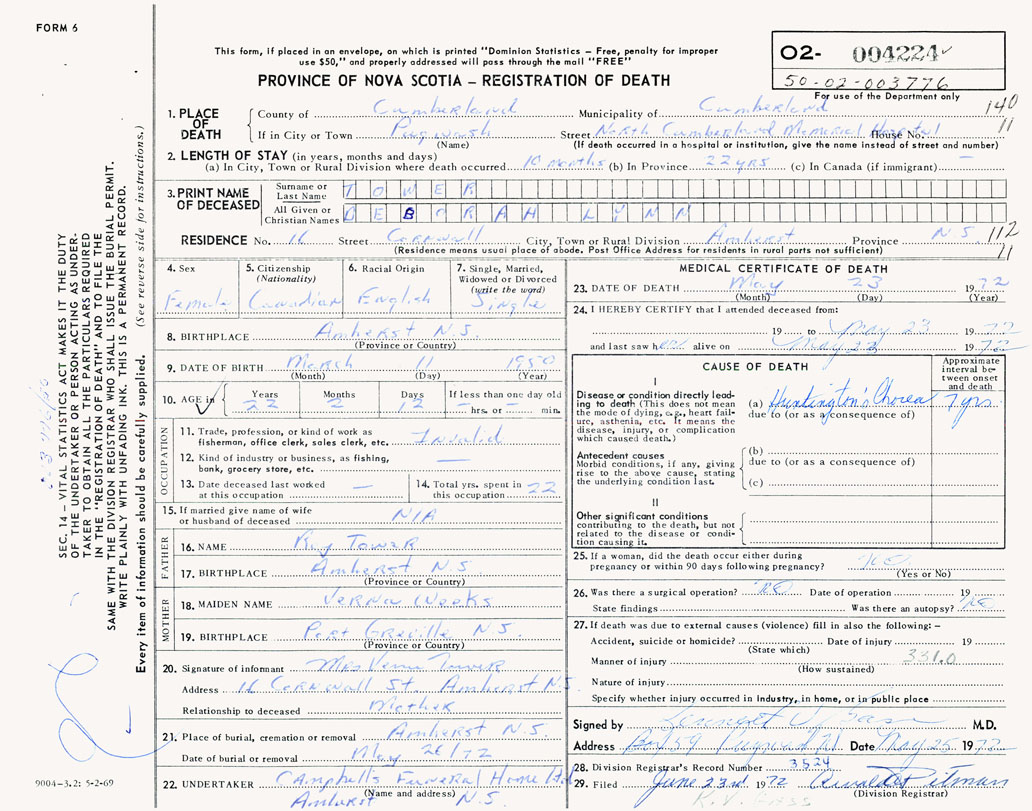 FORM 6
This form, if placed in an envelope, on which is printed "Dominion Statistics – Free, penalty for improper
use $50," and properly addressed will pass through the mail "FREE"
PROVINCE OF NOVA SCOTIA – REGISTRATION OF DEATH
O2- 004224
50-02-003776
For use of the Department only
140
11
1. PLACE OF DEATH
County of Cumberland Municipality of Cumberland
If in City or Town Pugwash Street North Cumberland Memorial Hospital House No.
(Name) (If death occurred in a hospital or institution, give the name instead of street and number)
2. LENGTH OF STAY (in years, months and days)
(a) In City, Town or Rural Division where death occurred 10 months (b) In Province 22 yrs (c) In Canada (if immigrant) —
3. PRINT NAME OF DECEASED
Surname or Last Name TOWER
All Given or Christian Names DEBORAH LYNN
RESIDENCE No. 16 Street Cornwall City, Town or Rural Division Amherst Province N.S.
112
11
(Residence means usual place of abode. Post Office Address for residents in rural parts not sufficient)
SEC. 14 – VITAL STATISTICS ACT MAKES IT THE DUTY
OF THE UNDERTAKER OR PERSON ACTING AS UNDER-
TAKER TO OBTAIN ALL THE PARTICULARS REQUIRED
IN THE "REGISTRATION OF DEATH" AND TO FILE THE
SAME WITH THE DIVISION REGISTRAR WHO SHALL ISSUE THE BURIAL PERMIT.
WRITE PLAINLY WITH UNFADING INK. THIS IS A PERMANENT RECORD.
Every item of information should be carefully supplied. (See reverse side for instructions.)
4. Sex
Female
5. Citizenship
(Nationality)
Canadian
6. Racial Origin
English
7. Single, Married,
Widowed or Divorced
(write the word)
Single
8. BIRTHPLACE Amherst N.S.
(Province or Country)
9. DATE OF BIRTH March 11 1950
(Month) (Day) (Year)
10. AGE in Years 22 Months 2 Days 12 If less than one day old
– hrs. or – min.
OCCUPATION
11. Trade, profession, or kind of work as
fisherman, office clerk, sales clerk, etc. Invalid
12. Kind of industry or business, as fishing,
bank, grocery store, etc. —
13. Date deceased last worked
at this occupation —
14. Total yrs. spent in
this occupation 22
15. If married give name of wife
or husband of deceased N/A
FATHER
16. NAME Roy Tower
17. BIRTHPLACE Amherst N.S.
(Province or Country)
MOTHER
18. MAIDEN NAME Verna Weeks
19. BIRTHPLACE Port Greville N.S.
(Province or Country)
20. Signature of informant Mrs Verna Tower
Address 16 Cornwall St. Amherst N.S.
Relationship to deceased Mother
21. Place of burial, cremation or removal Amherst N.S.
Date of burial or removal May 26/72
22. UNDERTAKER Campbell's Funeral Home Ltd
(Name and address)
Amherst N.S.
9004-3.2: 5-2-69
MEDICAL CERTIFICATE OF DEATH
23. DATE OF DEATH May 23 1972
(Month) (Day) (Year)
24. I HEREBY CERTIFY that I attended deceased from:
19 to May 23 1972
and last saw her alive on May 23 1972
CAUSE OF DEATH
Approximate interval between onset and death
I
Disease or condition directly lead-
ing to death (This does not mean
the mode of dying, e.g., heart fail-
ure, asthenia, etc. It means the
disease, injury, or complication
which caused death.)
(a) Huntington's Chorea 7 yrs.
due to (or as a consequence of)
Antecedent causes
Morbid conditions, if any, giving
rise to the above cause, stating
the underlying condition last.
(b)
due to (or as a consequence of)
(c)
II
Other significant conditions
contributing to the death, but not
related to the disease or condi-
tion causing it.
25. If a woman, did the death occur either during
pregnancy or within 90 days following pregnancy? NO
(Yes or No)
26. Was there a surgical operation? NO Date of operation 19
State findings Was there an autopsy? NO
27. If death was due to external causes (violence) fill in also the following: –
Accident, suicide or homicide? Date of injury 19
(State which)
331.0
Manner of injury
(How sustained)
Nature of injury
Specify whether injury occurred in industry, in home, or in public place
Signed by M.D.
Address Box 59 Date May 25 1972
28. Division Registrar's Record Number 3524
29. Filed June 23rd 1972 Pitman
(Division Registrar)